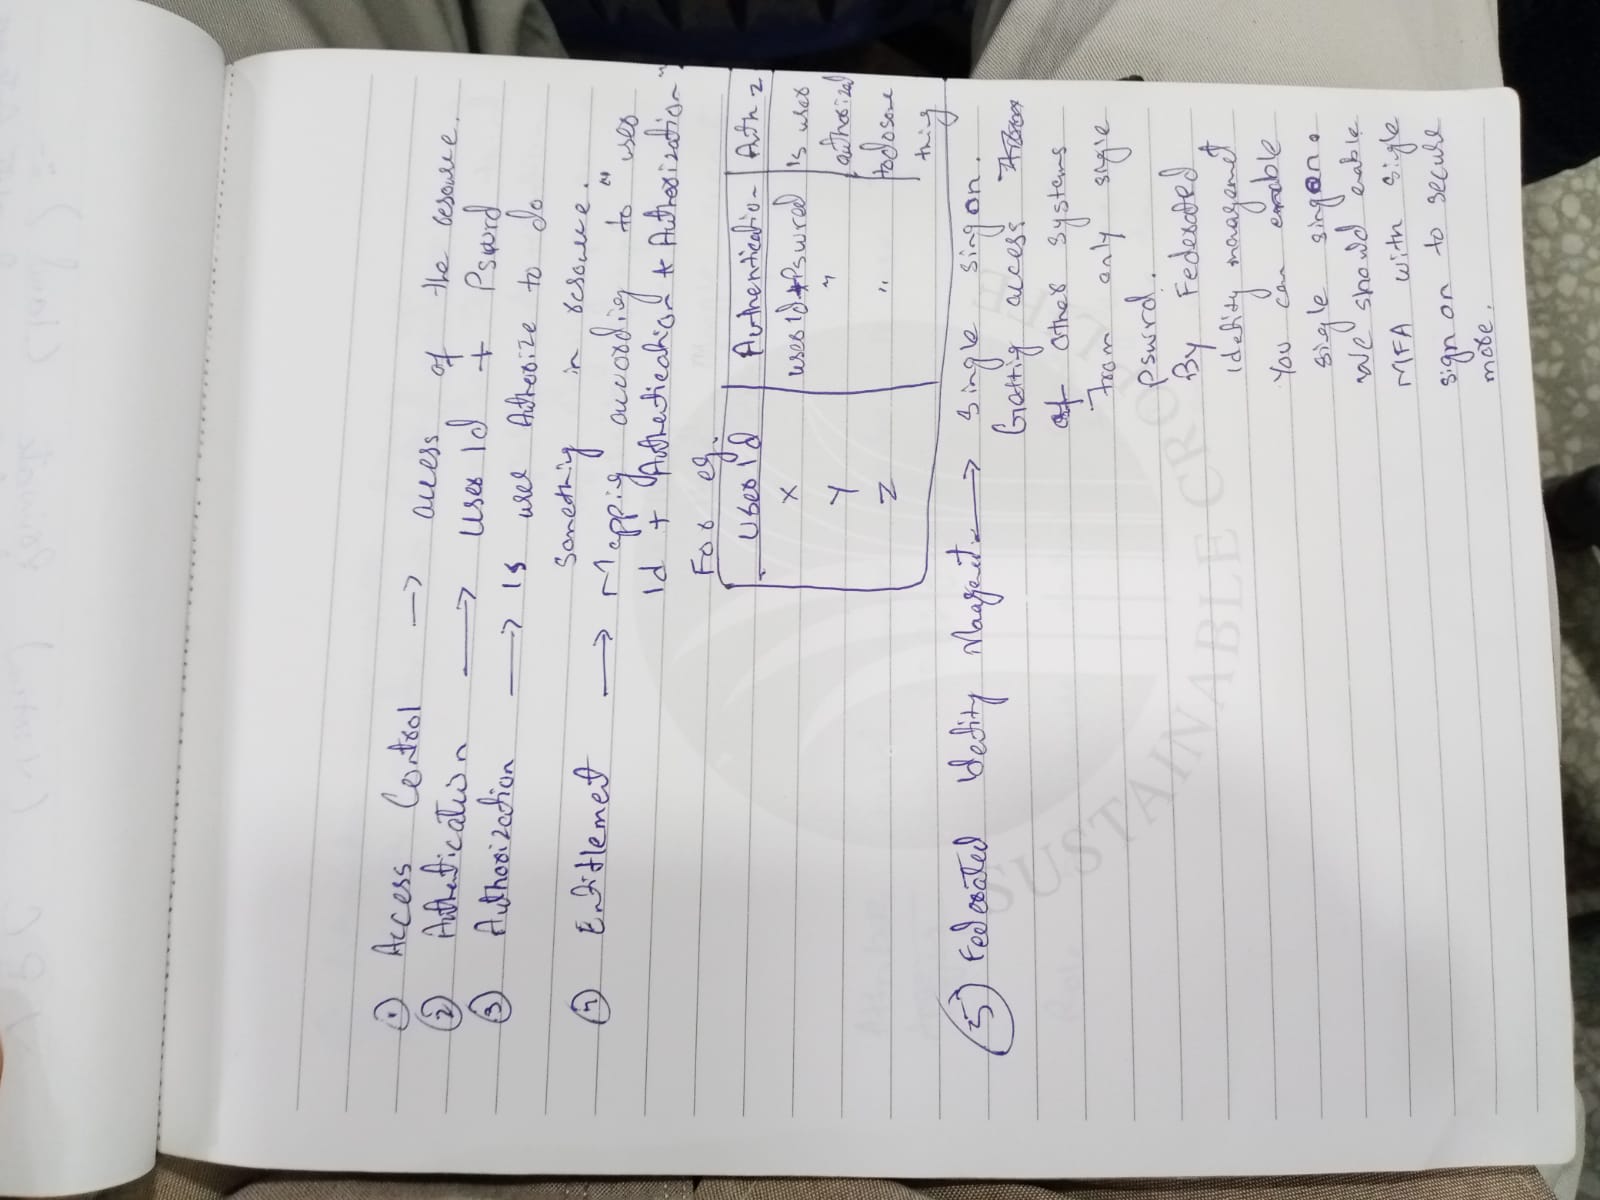 ① Access Control → access of the resource.
② Authentication → User Id + Pswrd
③ Authorization → Is user Authorize to do
something in resource.
④ Entitlement → Mapping according to "user
Id + Authentication + Authorization"
For eg.
User Id Authentication Auth z
X user Id + Pswrd Is user
Y " authorized
Z " to do some
thing
⑤ Federated Identity Management → Single sing on.
Getting access
of other systems
from only single
Pswrd.
By Federated
Identity management
You can enable
single sing on.
we should enable
MFA with single
sign on to secure
more.
LIFE GROUP
SUSTAINABLE